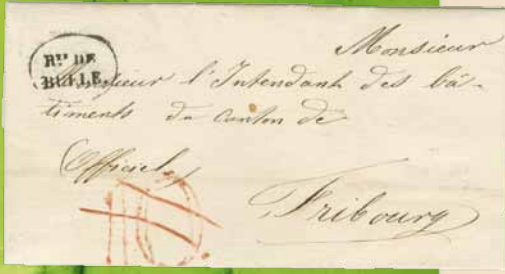 Rᵗᵉ DE
BULLE
Monsieur
Monsieur l'Intendant des bâ-
timents du Canton de
Officiel
Fribourg
10